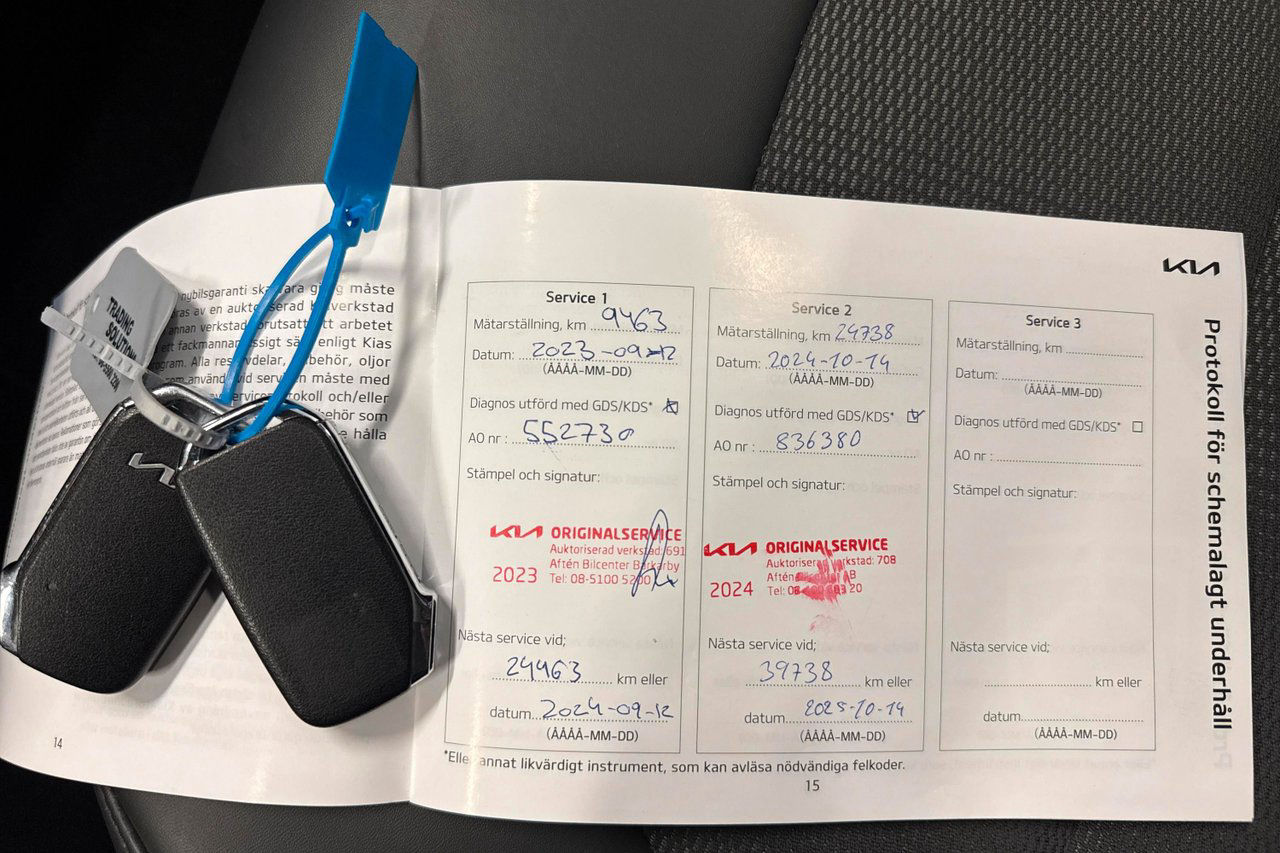 TRADING
SOLUTION
nybilsgaranti måste
av en verkstad
annan verkstad arbetet
ett fackmannamässigt enligt Kias
Alla oljor
service måste med
och/eller
som
hålla
14
KIA
Protokoll för schemalagt underhåll
Service 1
Mätarställning, km 9463
Datum: 2023-09-12
(ÅÅÅÅ-MM-DD)
Diagnos utförd med GDS/KDS*
AO nr : 552730
Stämpel och signatur:
KIA ORIGINALSERVICE
Auktoriserad verkstad: 691
Aftén Bilcenter Barkarby
2023 Tel: 08-5100 5200
Nästa service vid;
24463 km eller
datum 2024-09-12
(ÅÅÅÅ-MM-DD)
Service 2
Mätarställning, km 24738
Datum: 2024-10-14
(ÅÅÅÅ-MM-DD)
Diagnos utförd med GDS/KDS*
AO nr : 836380
Stämpel och signatur:
KIA ORIGINALSERVICE
Auktoriserad verkstad: 708
Aftén AB
2024 Tel: 20
Nästa service vid;
39738 km eller
datum 2025-10-14
(ÅÅÅÅ-MM-DD)
Service 3
Mätarställning, km
Datum:
(ÅÅÅÅ-MM-DD)
Diagnos utförd med GDS/KDS*
AO nr :
Stämpel och signatur:
Nästa service vid;
km eller
datum
(ÅÅÅÅ-MM-DD)
*Eller annat likvärdigt instrument, som kan avläsa nödvändiga felkoder.
15